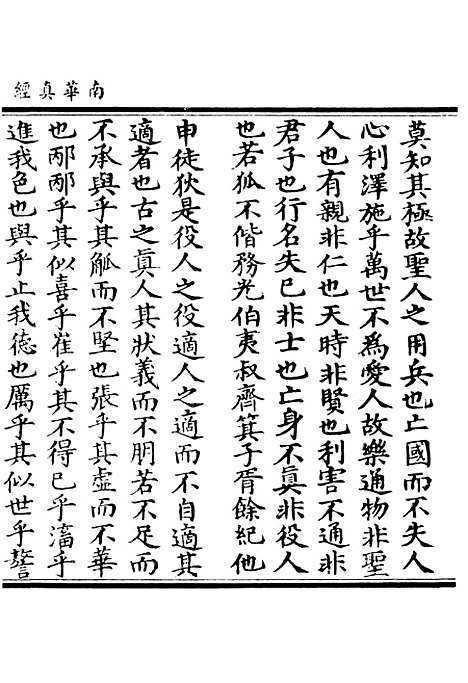 南華真經
莫知其極故聖人之用兵也亡國而不失人
心利澤施乎萬世不為愛人故樂通物非聖
人也有親非仁也天時非賢也利害不通非
君子也行名失已非士也亡身不真非役人
也若狐不偕務光伯夷叔齊箕子胥餘紀他
申徒狄是役人之役適人之適而不自適其
適者也古之真人其狀義而不朋若不足而
不承與乎其觚而不堅也張乎其虛而不華
也邴邴乎其似喜乎崔乎其不得已乎滀乎
進我色也與乎止我德也厲乎其似世乎謷